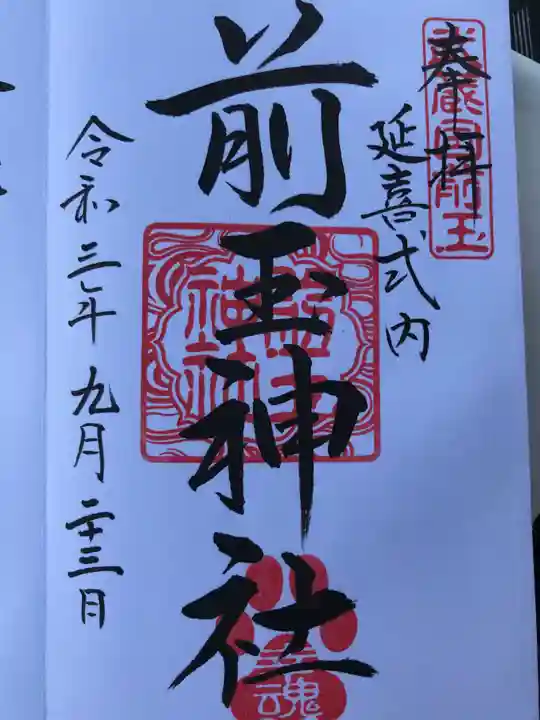 奉拝
延喜式内
前玉神社
令和三年九月二十三日
前玉
神社
魂